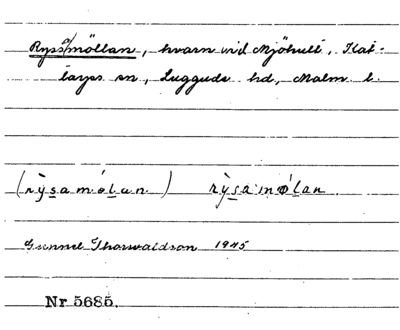 Ryssmöllan, kvarn vid Mjöhult, Kat-
tarps sn, Luggude hd, Malm. l.
(rỳsamó̀lan) rỳsamó̀lan.
Gunnel Thorwaldson 1945
Nr 5685.